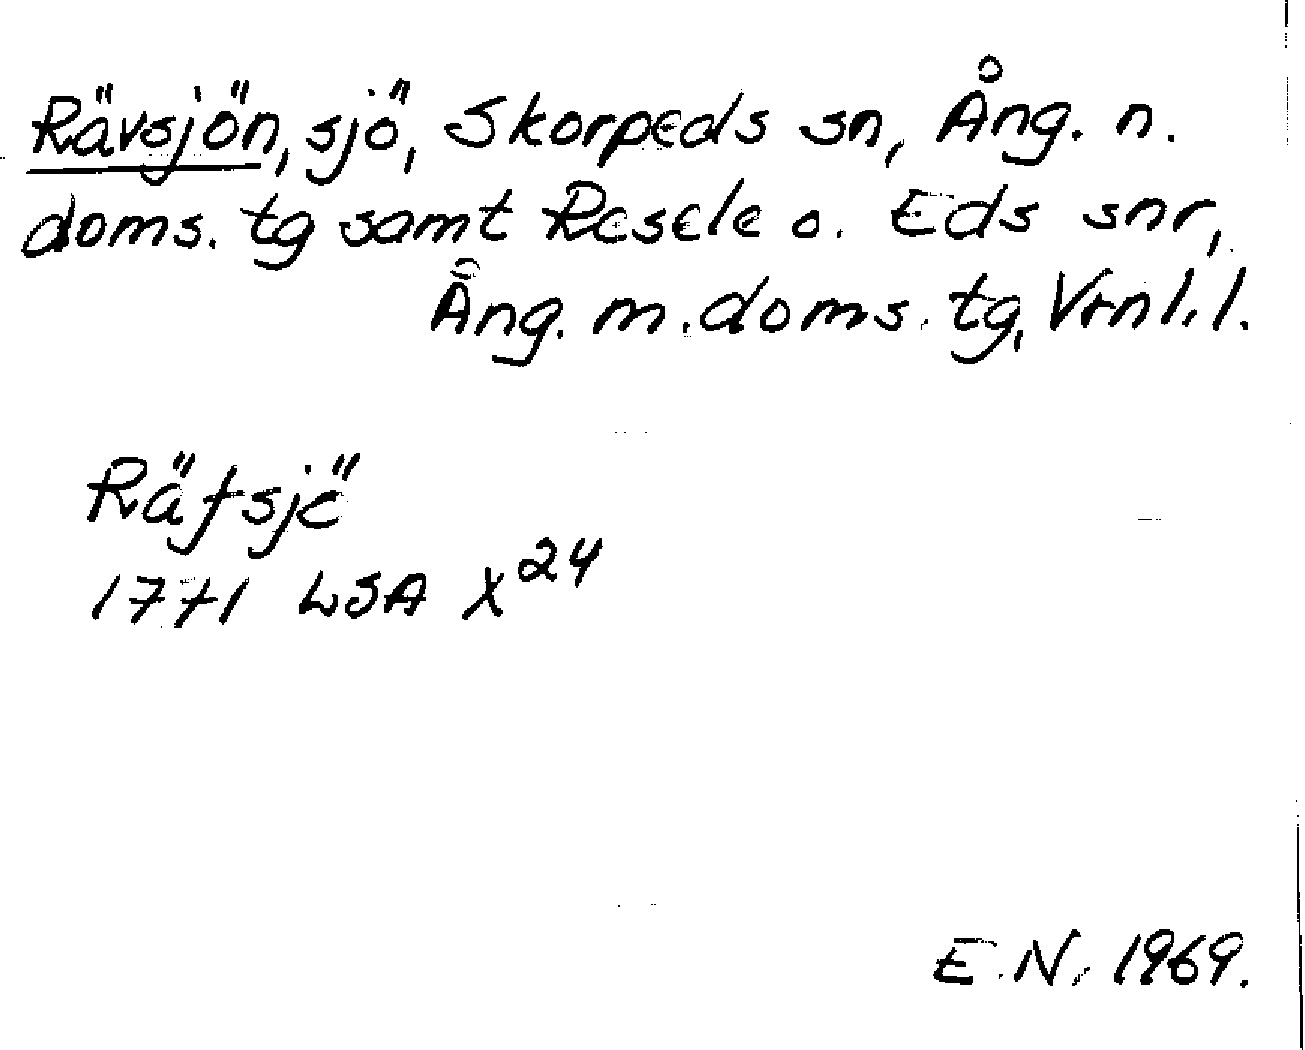 Rävsjön, sjö, Skorpeds sn, Ång. n.
doms. tg samt Resele o. Eds snr,
Ång. m. doms. tg, Vrnl. l.
Räfsjö
1771 LSA X 24
E.N. 1969.